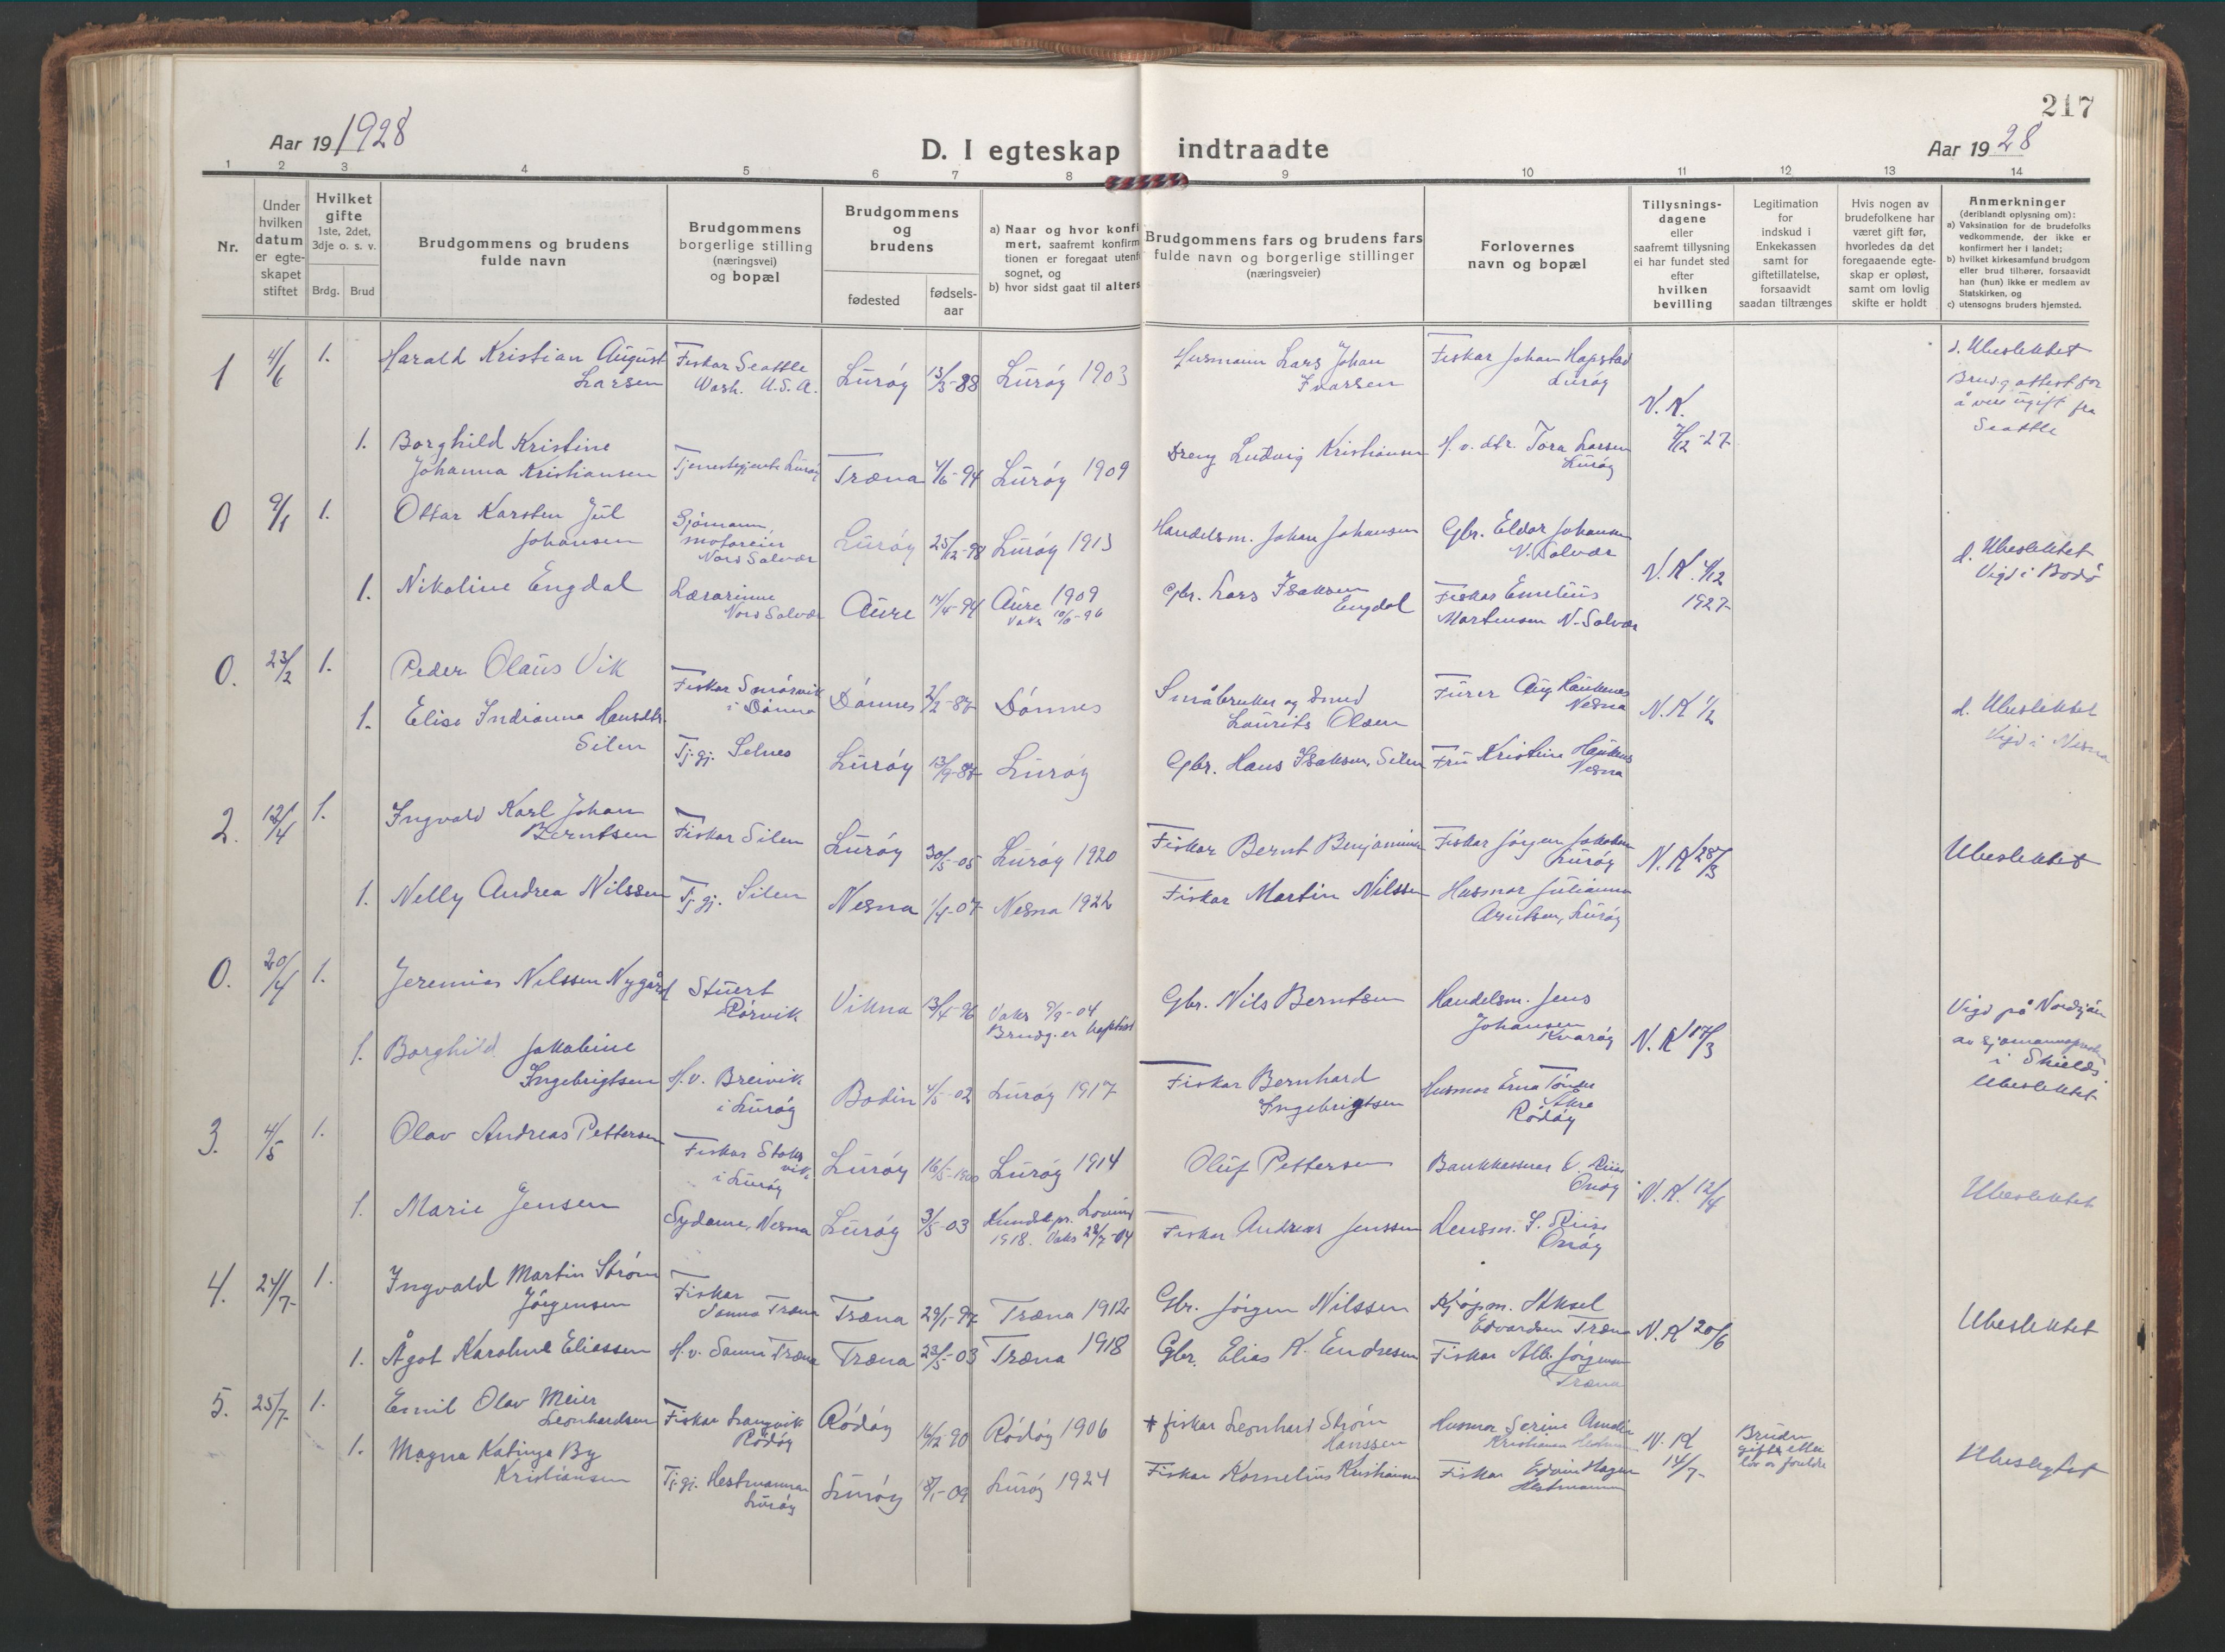 217
Aar 19 1928
D. I egteskap indtraadte
Aar 19 28
1 2 3 4 5 6 7 8 9 10 11 12 13 14
Nr.
Under
hvilken
datum
er egte-
skapet
stiftet
Hvilket
gifte
1ste, 2det,
3dje o. s. v.
Brdg. Brud
Brudgommens og brudens
fulde navn
Brudgommens
borgerlige stilling
(næringsvei)
og bopæl
Brudgommens
og
brudens
fødested
fødsels-
aar
a) Naar og hvor konfi
mert, saafremt konfirm
tionen er foregaat utenf
sognet, og
b) hvor sidst gaat til alters
Brudgommens fars og brudens fars
fulde navn og borgerlige stillinger
(næringsveier)
Forlovernes
navn og bopæl
Tillysnings-
dagene
eller
saafremt tillysning
ei har fundet sted
efter
hvilken
bevilling
Legitimation
for
indskud i
Enkekassen
samt for
giftetillatelse,
forsaavidt
saadan tiltrænges
Hvis nogen av
brudefolkene har
været gift før,
hvorledes da det
foregaaende egte-
skap er opløst,
samt om lovlig
skifte er holdt
Anmerkninger
(deriblandt oplysning om):
a) Vaksination for de brudefolks
vedkommende, der ikke er
konfirmert her i landet;
b) hvilket kirkesamfund brudgom
eller brud tilhører, forsaavidt
han (hun) ikke er medlem av
Statskirken, og
c) utensogns bruders hjemsted.
1 4/6 1. Harald Kristian August
Larsen
Fiskar Seattle
Wash. U.S.A.
Lurøy 13/3-88 Lurøy 1903
Husmann Lars Johan
Ivarsen
Fiskar Johan Hapstad
Lurøy
N. K.
7/12-27
d. Ubeslektet
Brudg attest for
å være ugift fra
Seattle
1. Borghild Kristine
Johanna Kristiansen
Tjenestegjente Lurøy
Træna 4/6-94 Lurøy 1909
Dreng Ludvig Kristiansen
H.v. dtr. Tora Larsen
Lurøy
0 9/1 1. Ottar Karsten Jul
Johansen
Sjømann,
motoreier
Nord Solvær
Lurøy 25/12-98 Lurøy 1913
Handelsm. Johan Johansen
Gbr. Eldor Johansen
N. Solvær
N. K. 4/12
1927
d. Ubeslektet
Vigd i Bodø
1. Nikoline Engdal
Lærarinne
Nord Solvær
Aure 14/4-94 Aure 1909
Vaks 10/6-96
Gbr. Lars Isaksen
Engdal
Fiskar Emelius
Martensen N. Solvær
0. 23/2 1. Peder Olaus Vik
Fiskar Smørvik
i Dønna
Dønnes 2/2-87 Dønnes
Småbruker og smed
Laurits Olsen
Furer Aug Haukenes
Nesna
N. K 1/2
d. Ubeslektet
Vigd i Nesna
1. Elise Indianna Hansdtr.
Silen
Tj.gj. Selnes
Lurøy 13/9-87 Lurøy
Gbr. Hans Isaksen, Silen
Fru Kristine Haukenes
Nesna
2. 12/4 1. Ingvald Karl Johan
Berntsen
Fiskar Silen
Lurøy 30/5-05 Lurøy 1920
Fiskar Bernt Benjaminsen
Fiskar Jørgen Jakobsen
Lurøy
N. K 28/3
Ubeslektet
1. Nelly Andrea Nilssen
Tj.gj. Silen
Nesna 1/4-07 Nesna 1922
Fiskar Martin Nilssen
Husmor Julianna
Arntsen, Lurøy
0. 20/4 1. Jeremias Nilssen Nygård
Stuert
Rørvik
Vikna 13/4-96
Vaks 9/9-04
Brudg. er baptist
Gbr. Nils Berntsen
Handelsm. Jens
Johansen
Kvarøy
N. K 17/3
Vigd på Nordsjøen
av sjømannsprest
i Shields
Ubeslektet
1. Borghild Jakobine
Ingebrigtsen
H.v. Breivik
i Lurøy
Bodin 4/5-02 Lurøy 1917
Fiskar Bernhard
Ingebrigtsen
Husmor Erna Tønder
Rødøy
3. 4/5 1. Olav Andreas Pettersen
Fiskar Stokk
vik
i Lurøy
Lurøy 16/5-1900 Lurøy 1914
Oluf Pettersen
Bankkasserer
Onøy
N. K. 12/4
Ubeslektet
1. Marie Jensen
Sydame, Nesna
Lurøy 3/5-03
Kundskpr. Lovund
1918. Vaks 28/7-04
Fiskar Andreas Jenssen
Lensm. S. Riise
Onøy
4. 24/7 1. Ingvald Martin Strøm
Jørgensen
Fiskar
Sanna Træna
Træna 29/1-97 Træna 1912
Gbr. Jørgen Nilssen
Kjøpm. Aksel
Edvardsen Træna
N. K 20/6
Ubeslektet
1. Ågot Karoline Eliassen
H.v. Sanna Træna
Træna 23/5-03 Træna 1918
Gbr. Elias K. Endresen
Fiskar Alb. Jørgensen
Træna
5. 25/7 1. Emil Olav Meier
Leonhardsen
Fiskar Langvik
Rødøy
Rødøy 16/2-90 Rødøy 1906
+ fiskar Leonhard Strøm
Hanssen
Husmor Serine Amalie
Kristiansen
N. K
14/7
Bruden
gifts etter
lov av foreldre
Ubeslegtet
1. Magna Katinga By
Kristiansen
Tj.gj. Hestmannen
Lurøy
Lurøy 18/1-09 Lurøy 1924
Fiskar Kornelius Kristiansen
Fiskar Edvin Hagen
Hestmannen